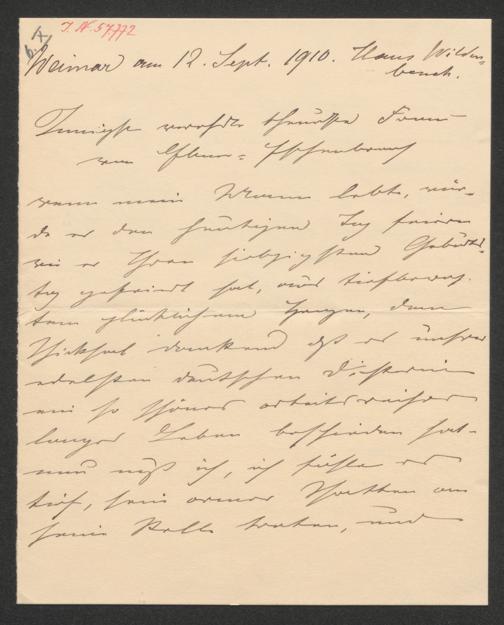 I. N. 57772
Weimar am 12. Sept. 1910. Haus Wilden-
bruch.
Innigst verehrte theuerste Frau
von Ebner-Eschenbach
wenn mein Mann lebte, wür-
de er den heutigen Tag feiern
wie er Ihren siebzigsten Geburts-
tag gefeiert hat, aus tiefbeweg-
tem glücklichem Herzen, dem
Schicksal dankend daß es unserer
edelsten deutschen Dichterin
ein so schönes arbeitsreiches
langes Leben beschieden hat-
nun muß ich, ich fühle es
tief, sein armer Schatten an
seine Stelle treten, und